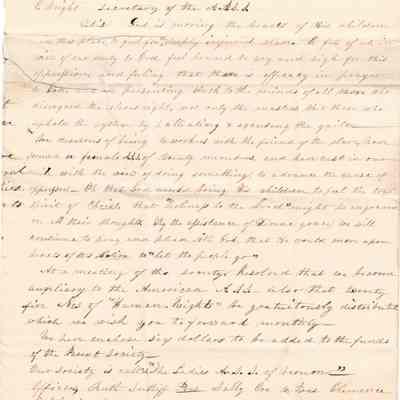 E. Wright Secretary of the A.A.S.S.
God is moving the hearts of His children
in this place, to feel for deeply injured slave. A few of us in
view of our duty to God feel bound to cry and sigh for this
oppression, and feeling that there is efficacy in prayer
to God and in presenting truth to the minds of all those who
disregard the slaves right, not only the masters, but those who
uphold the system by & excusing the guilt
desirous of being co workers with the friend of the slave, have
formed a female of twenty members, and have cast in our
with the view of doing something to advance the cause of
oppress. that God would bring His children to feel the true
spirit of Christ that "Holiness to the Lord" might be engraven
on all their thoughts. By the assistance of Divine grace, we will
continue to pray and plead with God, that He would move upon
hearts of this Nation to "let the people go"
At a meeting of the society Resolved that we become
auxiliary to the American A.S.S. also that twenty
five Nos of "Human Rights" be gratuitously distributed
which we wish you to forward monthly.
We here enclose six dollars to be added to the funds
of the Parent Society.
Our Society is called "The Ladies A.S.S. of Vernon"
Officers, Ruth Sutliff Pres Sally Coe Vice Pres Clemence